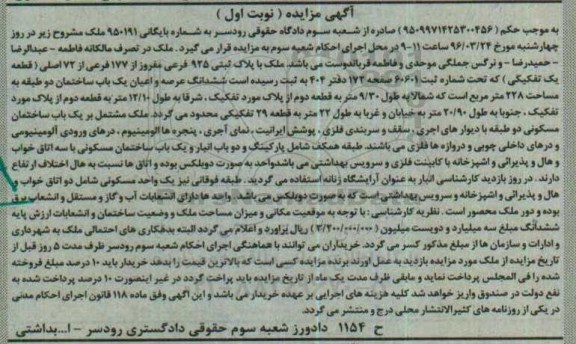 آگهی مزایده ( نوبت اول )
به موجب حکم ( ۹۵۰۹۹۷۱۴۲۵۳۰۰۴۵۶ ) صادره از شعبه سوم دادگاه حقوقی رودسر به شماره بایگانی ۹۵۰۱۹۱ ملک مشروح زیر در روز
چهارشنبه مورخ ۹۶/۰۳/۲۴ ساعت ۱۱-۹ در محل اجرای احکام شعبه سوم به مزایده قرار می گیرد. ملک در تصرف مالکانه فاطمه - عبدالرضا
- حمیدرضا - و نرگس جملگی موحدی و فاطمه قرباندوست می باشد. ملک با پلاک ثبتی ۹۲۵ فرعی مفروز از ۱۷۷ فرعی از ۷۲ اصلی ( قطعه
یک تفکیکی ) که تحت شماره ثبت ۶۰۶۰۱ صفحه ۱۷۲ دفتر ۴۰۴ به ثبت رسیده است ششدانگ عرصه و اعیان یک باب ساختمان دو طبقه به
مساحت ۲۲۸ متر مربع است که شمالا به طول ۹/۳۰ متر به قطعه دوم از پلاک مورد تفکیک ، شرقا به طول ۱۲/۱۰ متر به قطعه دوم از پلاک مورد
تفکیک ، جنوبا به طول ۲۰/۹۰ متر به خیابان و غربا به طول ۲۲ متر به قطعه ۲۹ تفکیکی محدود می گردد. ملک مشتمل بر یک باب ساختمان
مسکونی دو طبقه با دیوار های آجری ، سقف و سربندی فلزی ، پوشش ایرانیت ، نمای آجری ، پنجره ها آلومینیوم ، درهای ورودی آلومینیومی
و درهای داخلی چوبی و دروازه ها فلزی می باشند. طبقه همکف شامل پارکینگ و دو باب انبار و یک باب ساختمان مسکونی با سه اتاق خواب
و هال و پذیرائی و آشپزخانه با کابینت فلزی و سرویس بهداشتی می باشد واحد به صورت دوبلکس بوده و اتاق ها نسبت به هال اختلاف ارتفاع
دارند. در روز بازدید کارشناسی انبار به عنوان آرایشگاه زنانه استفاده می گردید. طبقه فوقانی نیز یک واحد مسکونی شامل دو اتاق خواب و
هال و پذیرائی و آشپزخانه و سرویس بهداشتی است که به صورت دوبلکس می باشد. واحد ها دارای انشعابات آب و گاز و مستقل و انشعاب برق
بوده و دور ملک محصور است. نظریه کارشناسی : با توجه به موقعیت مکانی و میزان مساحت ملک و وضعیت ساختمان و انشعابات ارزش پایه
ششدانگ مبلغ سه میلیارد و دویست میلیون ( ۳/۲۰۰/۰۰۰/۰۰۰ ) ریال برآورد و اعلام می گردد البته بدهکاری های احتمالی ملک به شهرداری
و ادارات و سازمان ها از مبلغ مذکور کسر می گردد. خریداران می توانند با هماهنگی اجرای احکام شعبه سوم رودسر ظرف مدت ۵ روز قبل از
تاریخ مزایده از ملک مورد مزایده بازدید به عمل آورند برنده مزایده کسی است که بالاترین قیمت را بدهد خریدار باید ۱۰ درصد مبلغ فروخته
شده را فی المجلس پرداخت نماید و مابقی ظرف مدت یک ماه از تاریخ مزایده باید پراخت گردد در غیر اینصورت ۱۰ درصد پرداخت شده به
نفع دولت در صندوق واریز خواهد شد کلیه هزینه های اجرایی بر عهده خریدار می باشد و این آگهی وفق ماده ۱۱۸ قانون اجرای احکام مدنی
در یکی از روزنامه های کثیرالانتشار محلی درج و منتشر می گردد.
ح ۱۱۵۴ دادورز شعبه سوم حقوقی دادگستری رودسر - ا...بداشتی